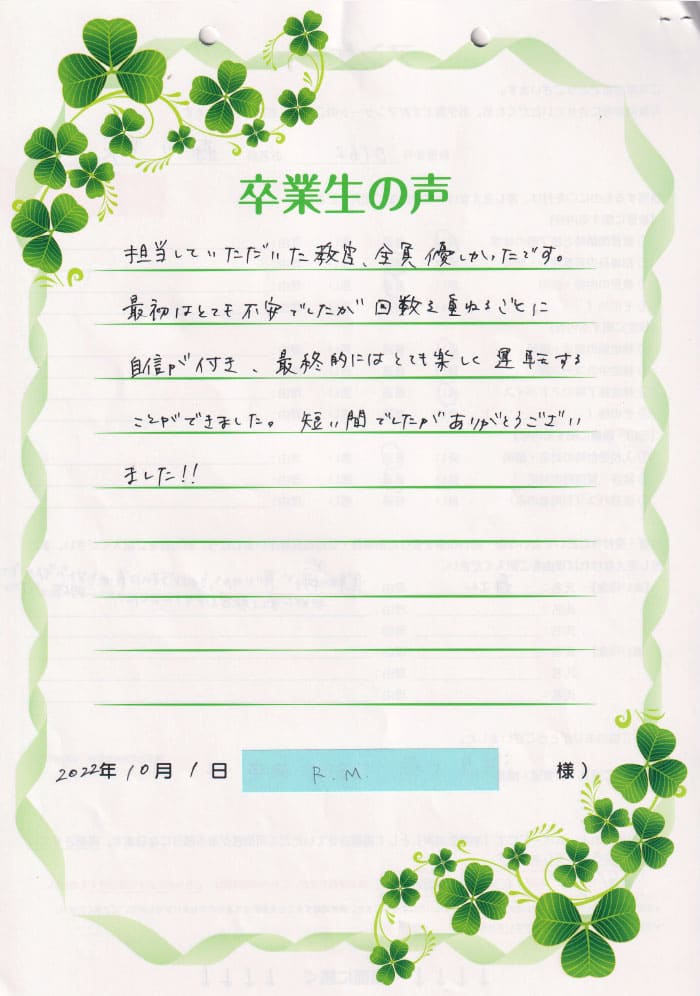 卒業生の声
担当していただいた教官、全員優しかったです。
最初はとても不安でしたが回数を重ねるごとに
自信が付き、最終的にはとても楽しく運転する
ことができました。短い間でしたがありがとうござい
ました!!
2022年10月1日 R.M. 様)